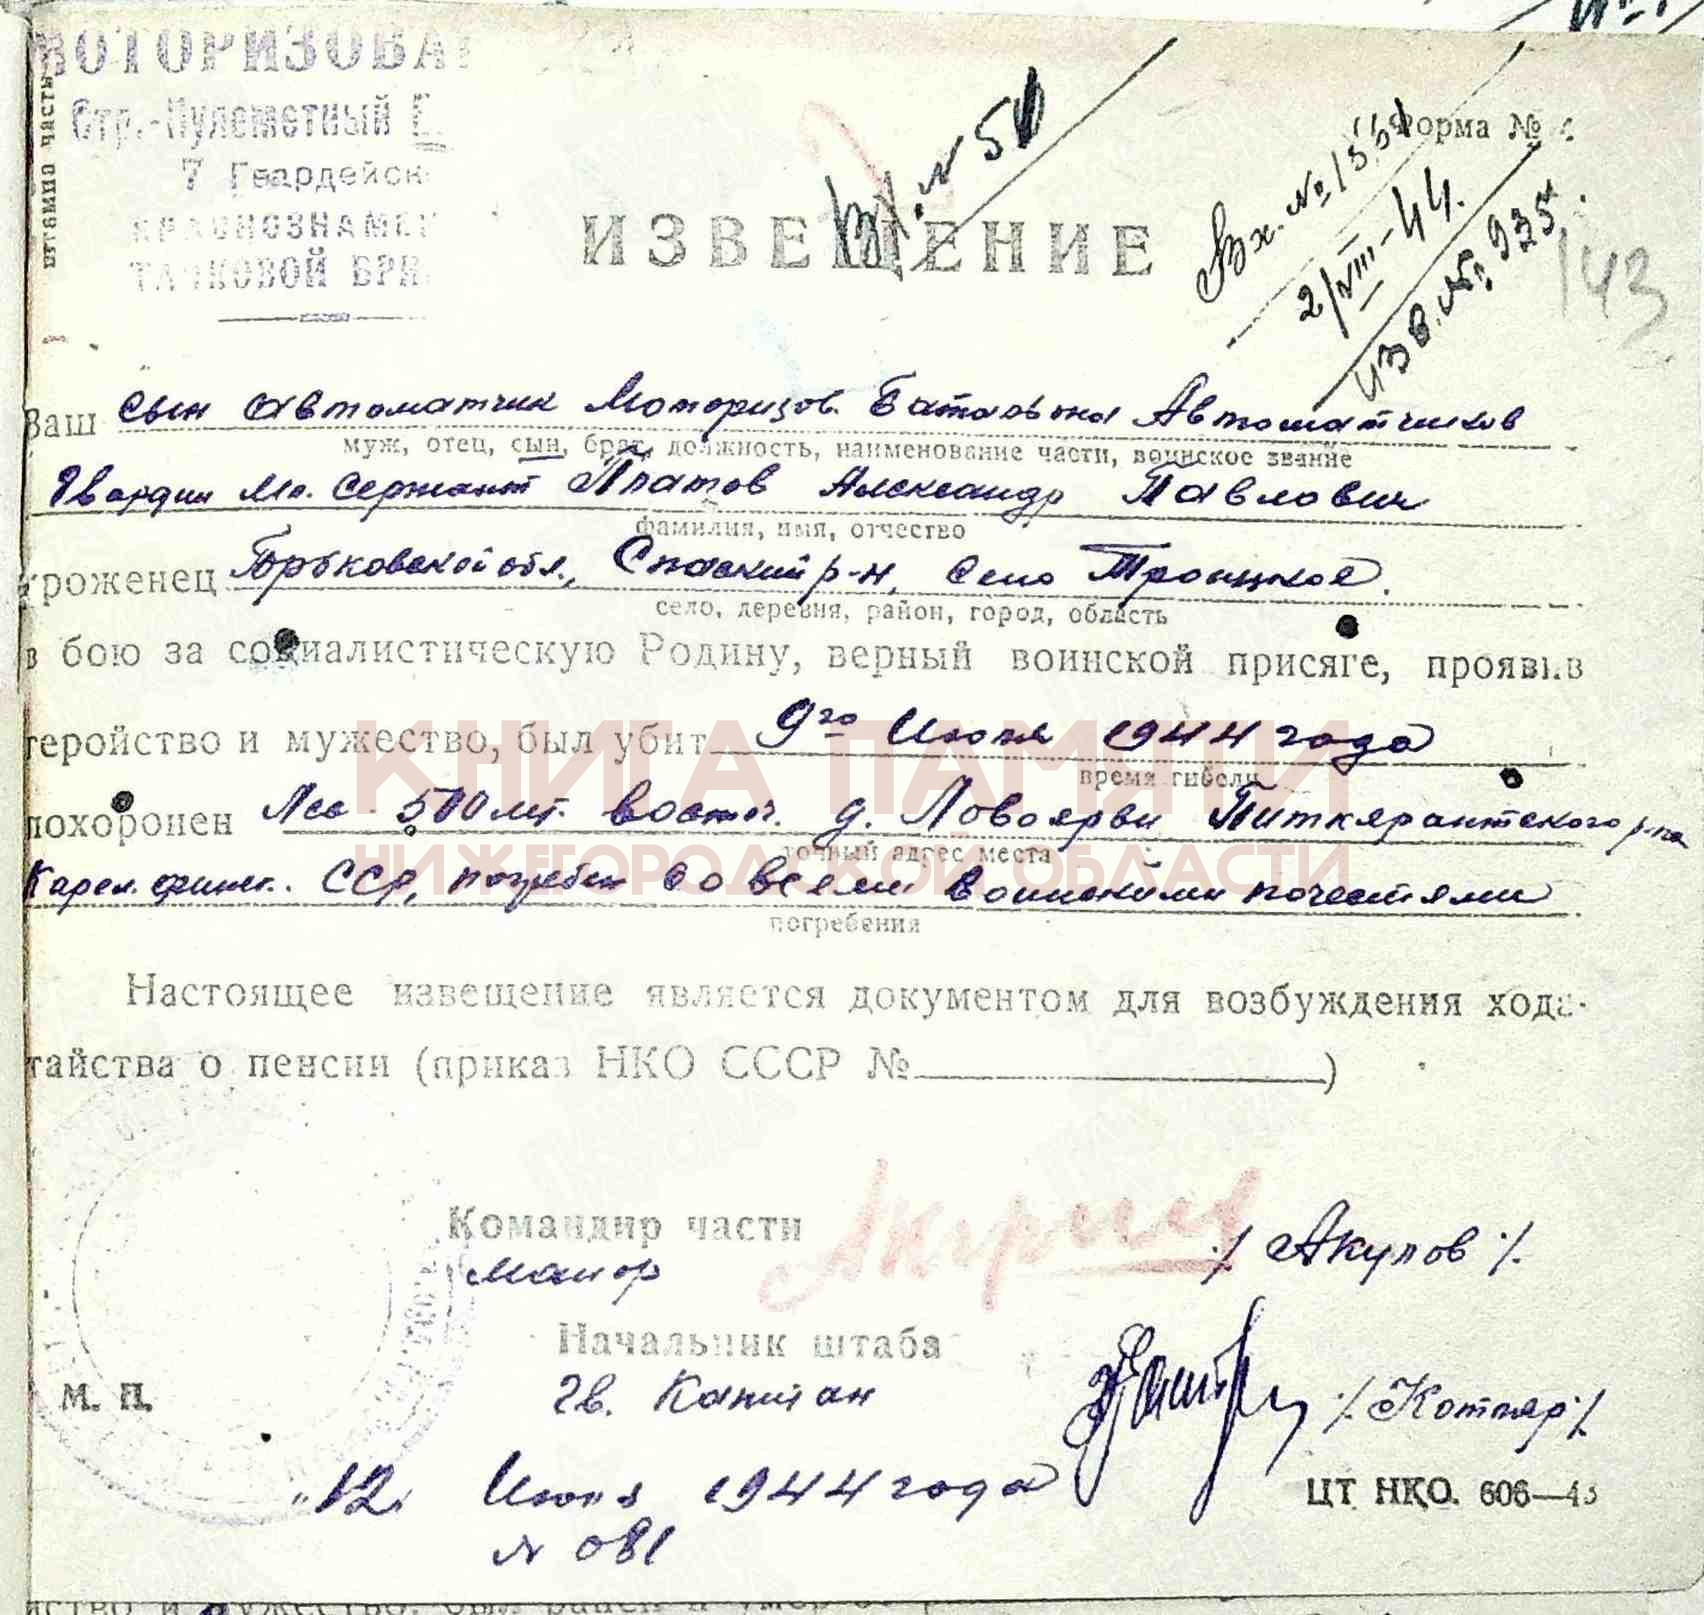 МОТОРИЗОВА
Стр.-Пулеметный Б
7 Гвардейск
КРАСНОЗНАМЕН
ТАНКОВОЙ БРИ
штамп часть
№ 50
Форма №
Вх. № 1551
2/VIII-44.
Изв. № 935
143
ИЗВЕЩЕНИЕ
Ваш сын автоматчик Моторизов. Батальона Автоматчиков
муж, отец, сын, брат, должность, наименование части, воинское звание
Гвардии Мл. Сержант Платов Александр Павлович
фамилия, имя, отчество
уроженец Горьковской обл., Спаский р-н, село Троицкое.
село, деревня, район, город, область
в бою за социалистическую Родину, верный воинской присяге, проявив
геройство и мужество, был убит 9го Июля 1944 года
время гибели
похоронен Лес 500 мт. восточ. д. Ловоярви Питкярантского р-на
точный адрес места
Карел. финск. ССР, погребен со всеми воинскими почестями
погребения
КНИГА ПАМЯТИ
НИЖЕГОРОДСКОЙ ОБЛАСТИ
Настоящее извещение является документом для возбуждения хода-
тайства о пенсии (приказ НКО СССР № )
Командир части
Майор
/ Акулов /
Начальник штаба
Гв. Капитан
/ Котляр /
М. П.
"12" Июля 1944 года
№ 081
ЦТ НКО. 606—43